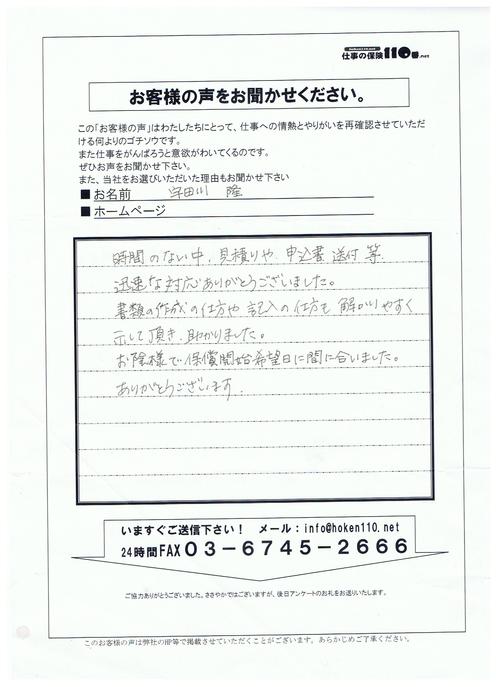 hoken110.net
仕事の保険110番.net
お客様の声をお聞かせください。
この「お客様の声」はわたしたちにとって、仕事への情熱とやりがいを再確認させていただ
ける何よりのゴチソウです。
また仕事をがんばろうと意欲がわいてくるのです。
ぜひお声をお聞かせ下さい。
また、当社をお選びいただいた理由もお聞かせ下さい
■お名前 宇田川 隆
■ホームページ
時間のない中、見積りや、申込書送付等
迅速な対応ありがとうございました。
書類の作成の仕方や記入の仕方も解かりやすく
示して頂き、助かりました。
お陰様で保償開始希望日に間に合いました。
ありがとうございます.
いますぐご送信下さい! メール:info@hoken110.net
24時間FAX 03-6745-2666
ご協力ありがとうございました。ささやかではございますが、後日アンケートのお礼をお送りいたします。
このお客様の声は弊社の冊等で掲載させていただくことがございます。あらかじめご了承ください。